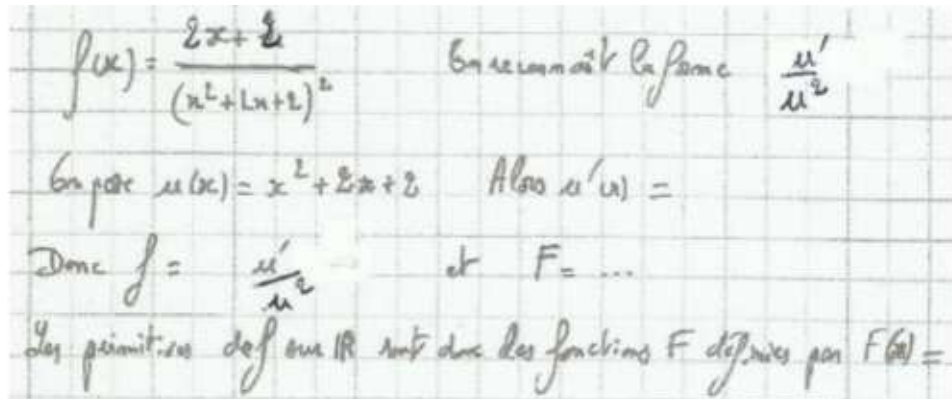 f(x) = (2x + 2) / (x² + 2x + 2)² On reconnaît la forme u' / u²
On pose u(x) = x² + 2x + 2 Alors u'(x) =
Donc f = u' / u² et F = ...
Les primitives de f sur IR sont donc les fonctions F définies par F(x) =